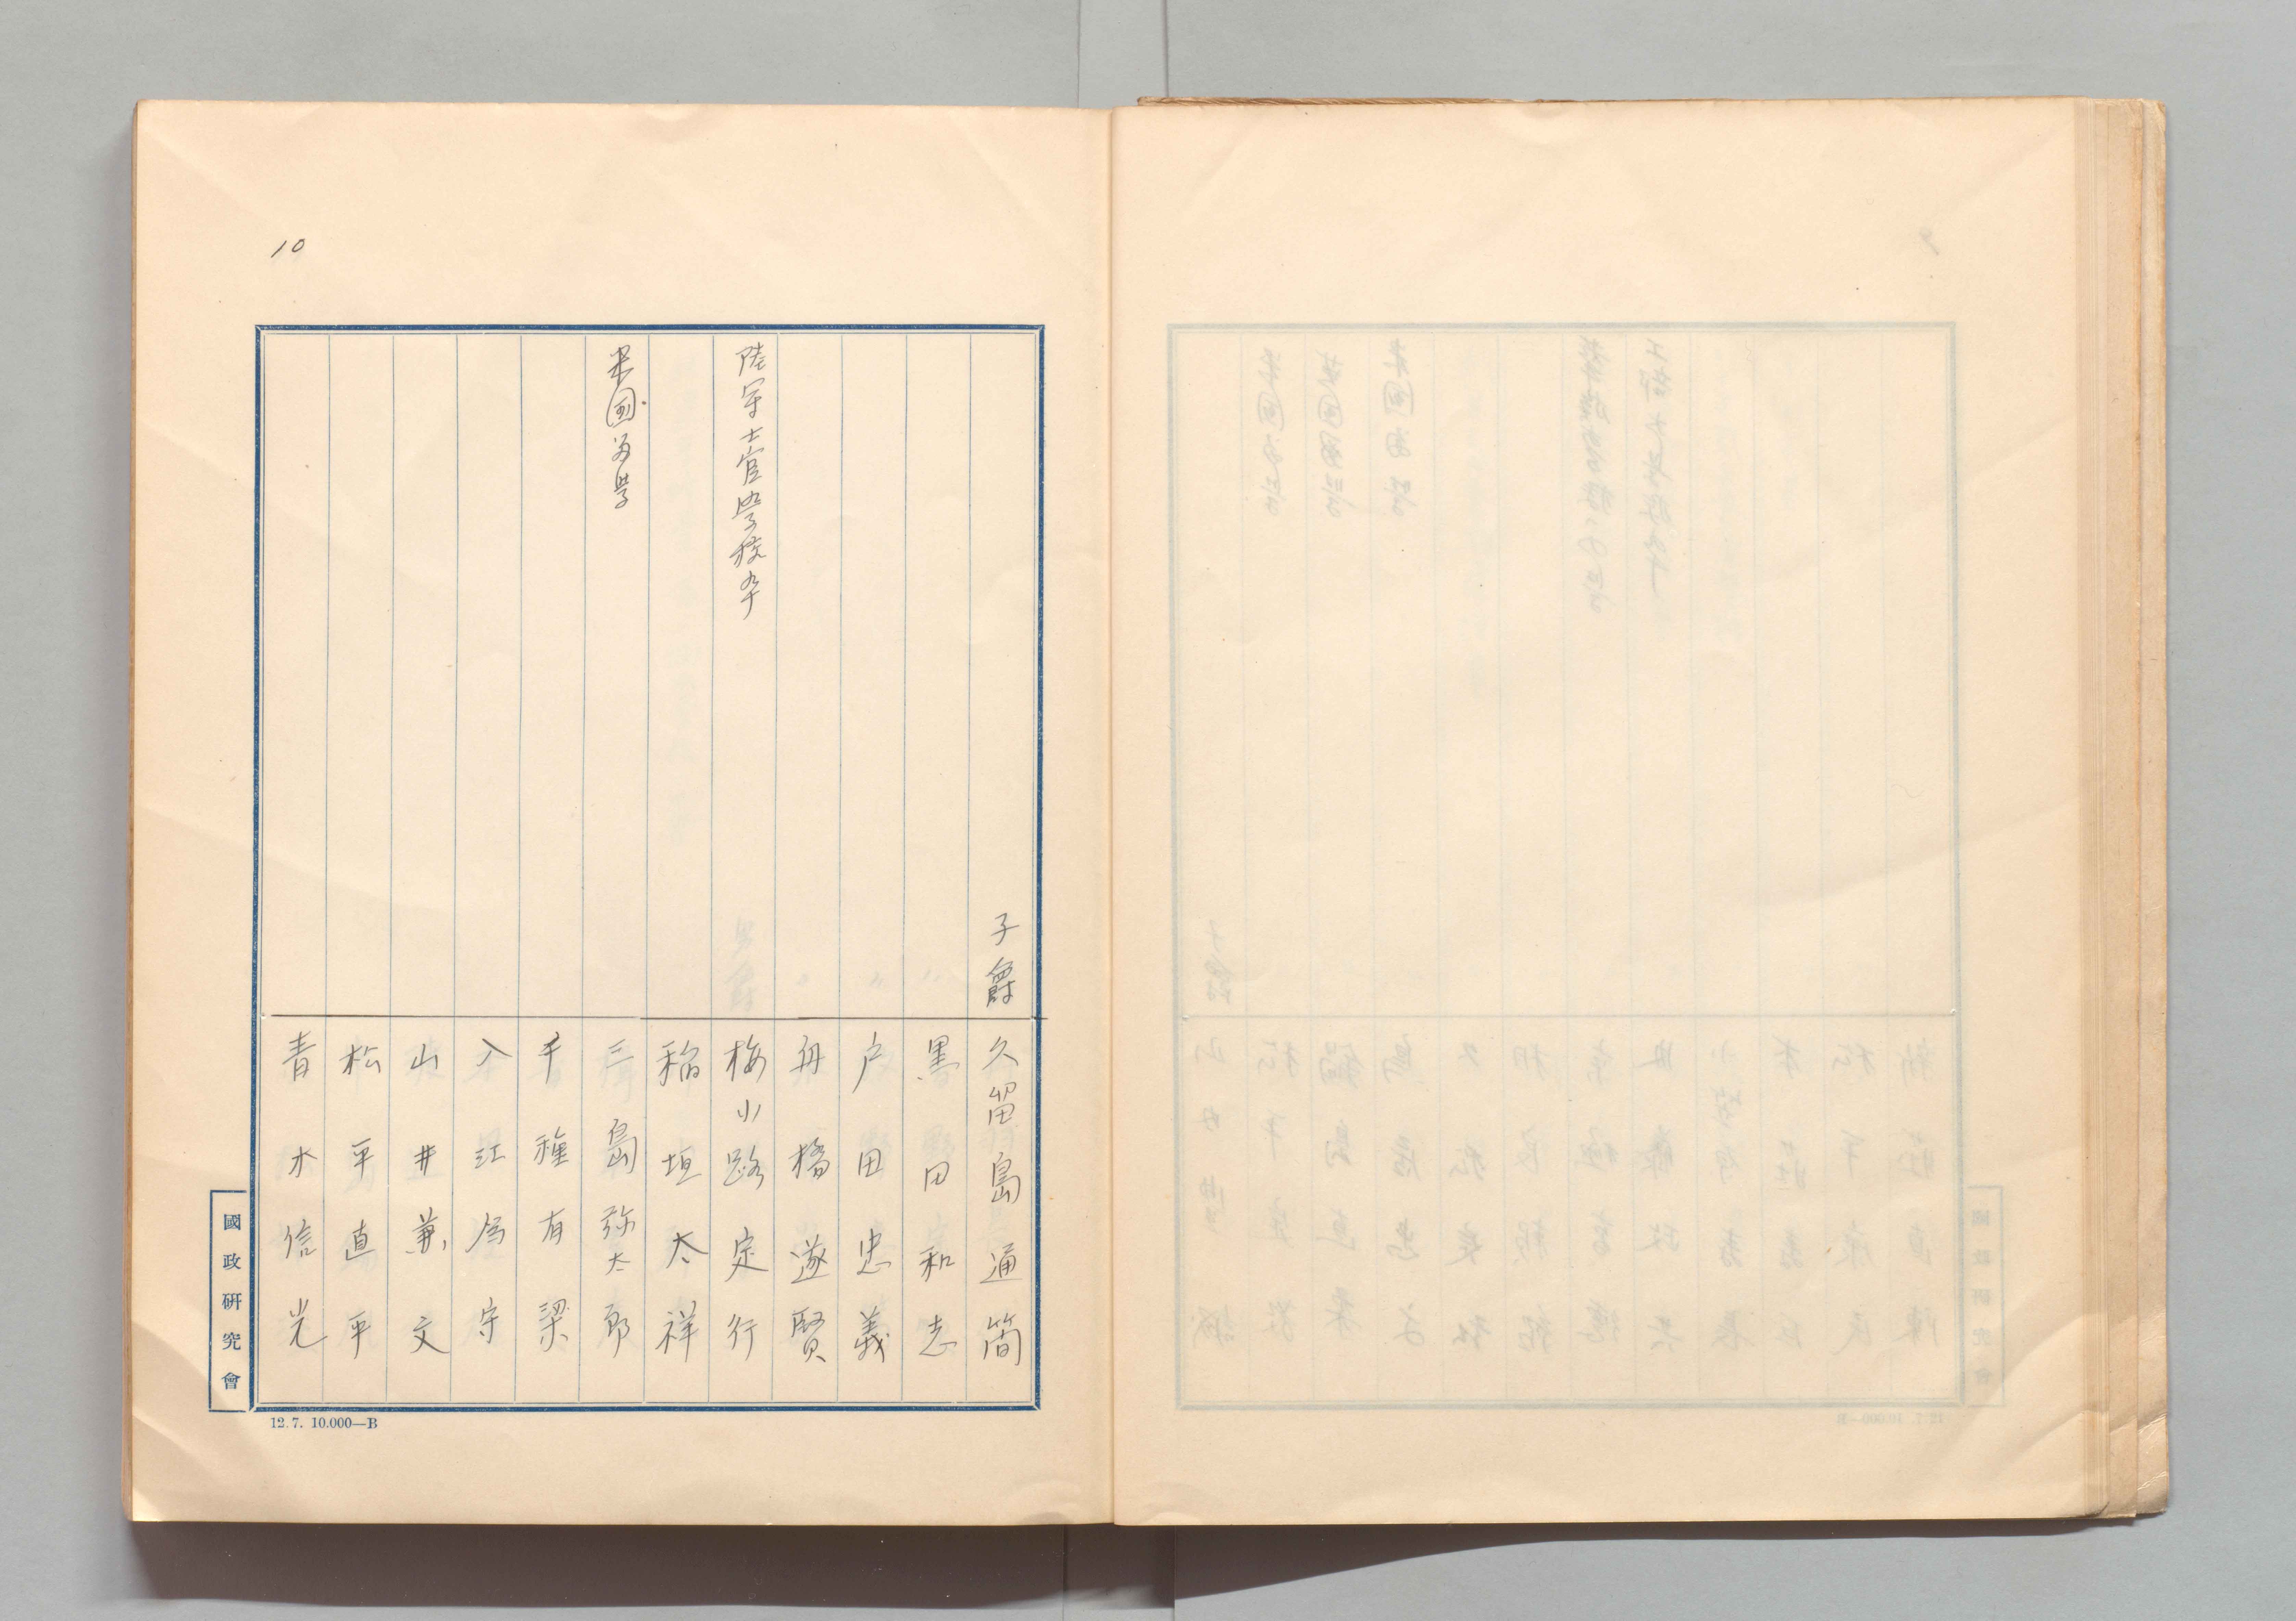 10
子爵 久留島通簡
黒田和志
戸田忠義
舟橋遂賢
陸軍士官学校卒 梅小路定行
稲垣太祥
米国留学 三島弥太郎
千種有梁
入江為守
山井兼文
松平直平
青木信光
國政研究會
12.7. 10.000—B